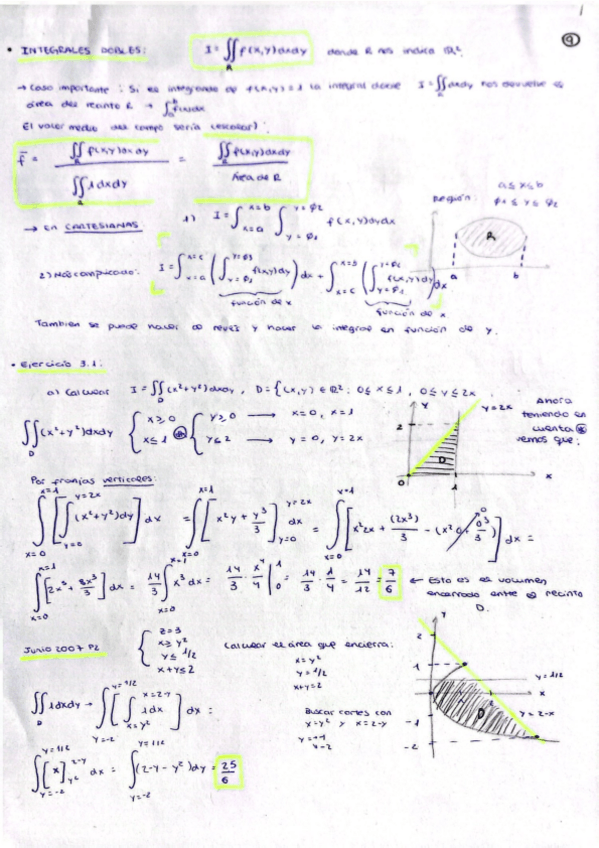 9
• INTEGRALES DOBLES: I = ∬_R f(x,y)dxdy donde R nos indica ℝ².
→ Caso importante: Si el integrando de f(x,y)=1 la integral doble I = ∬dxdy nos devuelve el
área del recinto R → ∫_a^b f(x)dx
El valor medio del campo sería (escalar):
f̄ = ∬_R f(x,y)dxdy / ∬_R 1dxdy = ∬_R f(x,y)dxdy / Área de R
→ EN CARTESIANAS 1) I = ∫_{x=a}^{x=b} ∫_{y=φ1}^{y=φ2} f(x,y)dydx
Región: a ≤ x ≤ b
φ1 ≤ y ≤ φ2
R
a b
2) Más complicado: I = ∫_{x=a}^{x=c} (∫_{y=φ1}^{y=φ3} f(x,y)dy) dx + ∫_{x=c}^{x=b} (∫ f(x,y)dy) dx
función de x función de x
Tambien se puede hacer al revés y hacer la integral en función de y.
• Ejercicio 3.1:
a) Calcular I = ∬_D (x²+y²)dxdy, D = {(x,y) ∈ ℝ²: 0 ≤ x ≤ 1, 0 ≤ y ≤ 2x
∬_D (x²+y²)dxdy { x ≥ 0 x ≤ 1 { y ≥ 0 → x=0, x=1
y ≤ 2 → y=0, y=2x
Y y=2x 2 D 0 1 x
Ahora
teniendo en
cuenta
vemos que:
Por franjas verticales:
∫_{x=0}^{x=1} [∫_{y=0}^{y=2x} (x²+y²)dy] dx = ∫_{x=0}^{x=1} [x²y + y³/3]_{y=0}^{y=2x} dx = ∫_{x=0}^{x=1} [x²2x + (2x³)/3 - (x²0 + 0³/3)] dx =
∫_{x=0}^{x=1} [2x³ + 8x³/3] dx = 14/3 ∫_{x=0}^{x=1} x³dx = 14/3 · x⁴/4 |_0^1 = 14/3 · 1/4 = 14/12 = 7/6 ← Esto es el volumen
encerrado entre el recinto
D.
Junio 2007 P2 { z=3
x ≥ y²
y ≤ 1/2
x+y ≤ 2
Calcular el área que encierra:
x=y²
y=1/2
x+y=2
Y 2 1 y=1/2 x D y=2-x -1 -2
∬_D 1dxdy → ∫_{y=-2}^{y=1/2} [∫_{x=y²}^{x=2-y} 1dx] dx =
Buscar cortes con
x=y² y x=2-y
∫_{y=-2}^{y=1/2} [x]_{y²}^{2-y} dx = ∫_{y=-2}^{y=1/2} (2-y-y²)dy = 25/6